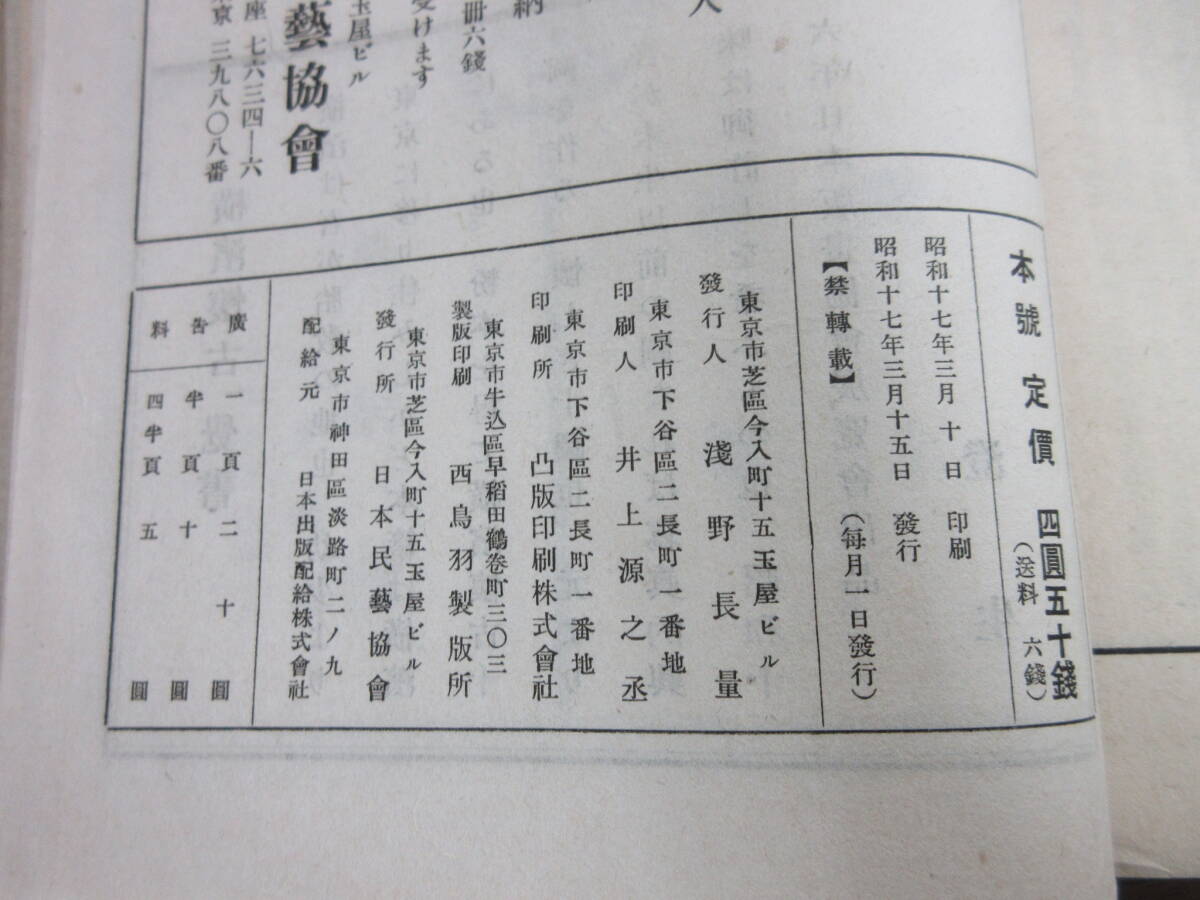 人
納
冊六錢
受けます
玉屋ビル
藝協會
座 七六三四―六
京 三九八〇八番
本號定價 四圓五十錢
(送料 六錢)
昭和十七年三月十日 印刷
昭和十七年三月十五日 發行
【禁轉載】 (每月一日發行)
東京市芝區今入町十五玉屋ビル
發行人 淺野長量
東京市下谷區二長町一番地
印刷人 井上源之丞
東京市下谷區二長町一番地
印刷所 凸版印刷株式會社
東京市牛込區早稻田鶴卷町三〇三
製版印刷 西鳥羽製版所
東京市芝區今入町十五玉屋ビル
發行所 日本民藝協會
東京市神田區淡路町二ノ九
配給元 日本出版配給株式會社
廣告料
一頁 二十圓
半頁 十圓
四半頁 五圓